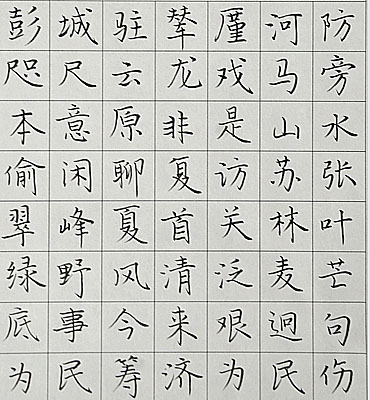 彭城驻辇廑河防
咫尺云龙戏马旁
本意原非是山水
偷闲聊复访苏张
翠峰夏首关林叶
绿野风清泛麦芒
底事今来艰迥句
为民筹济为民伤